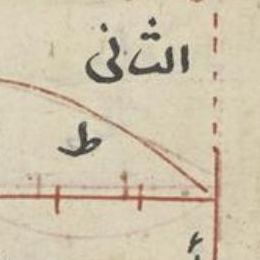 الثانى
ط
أ